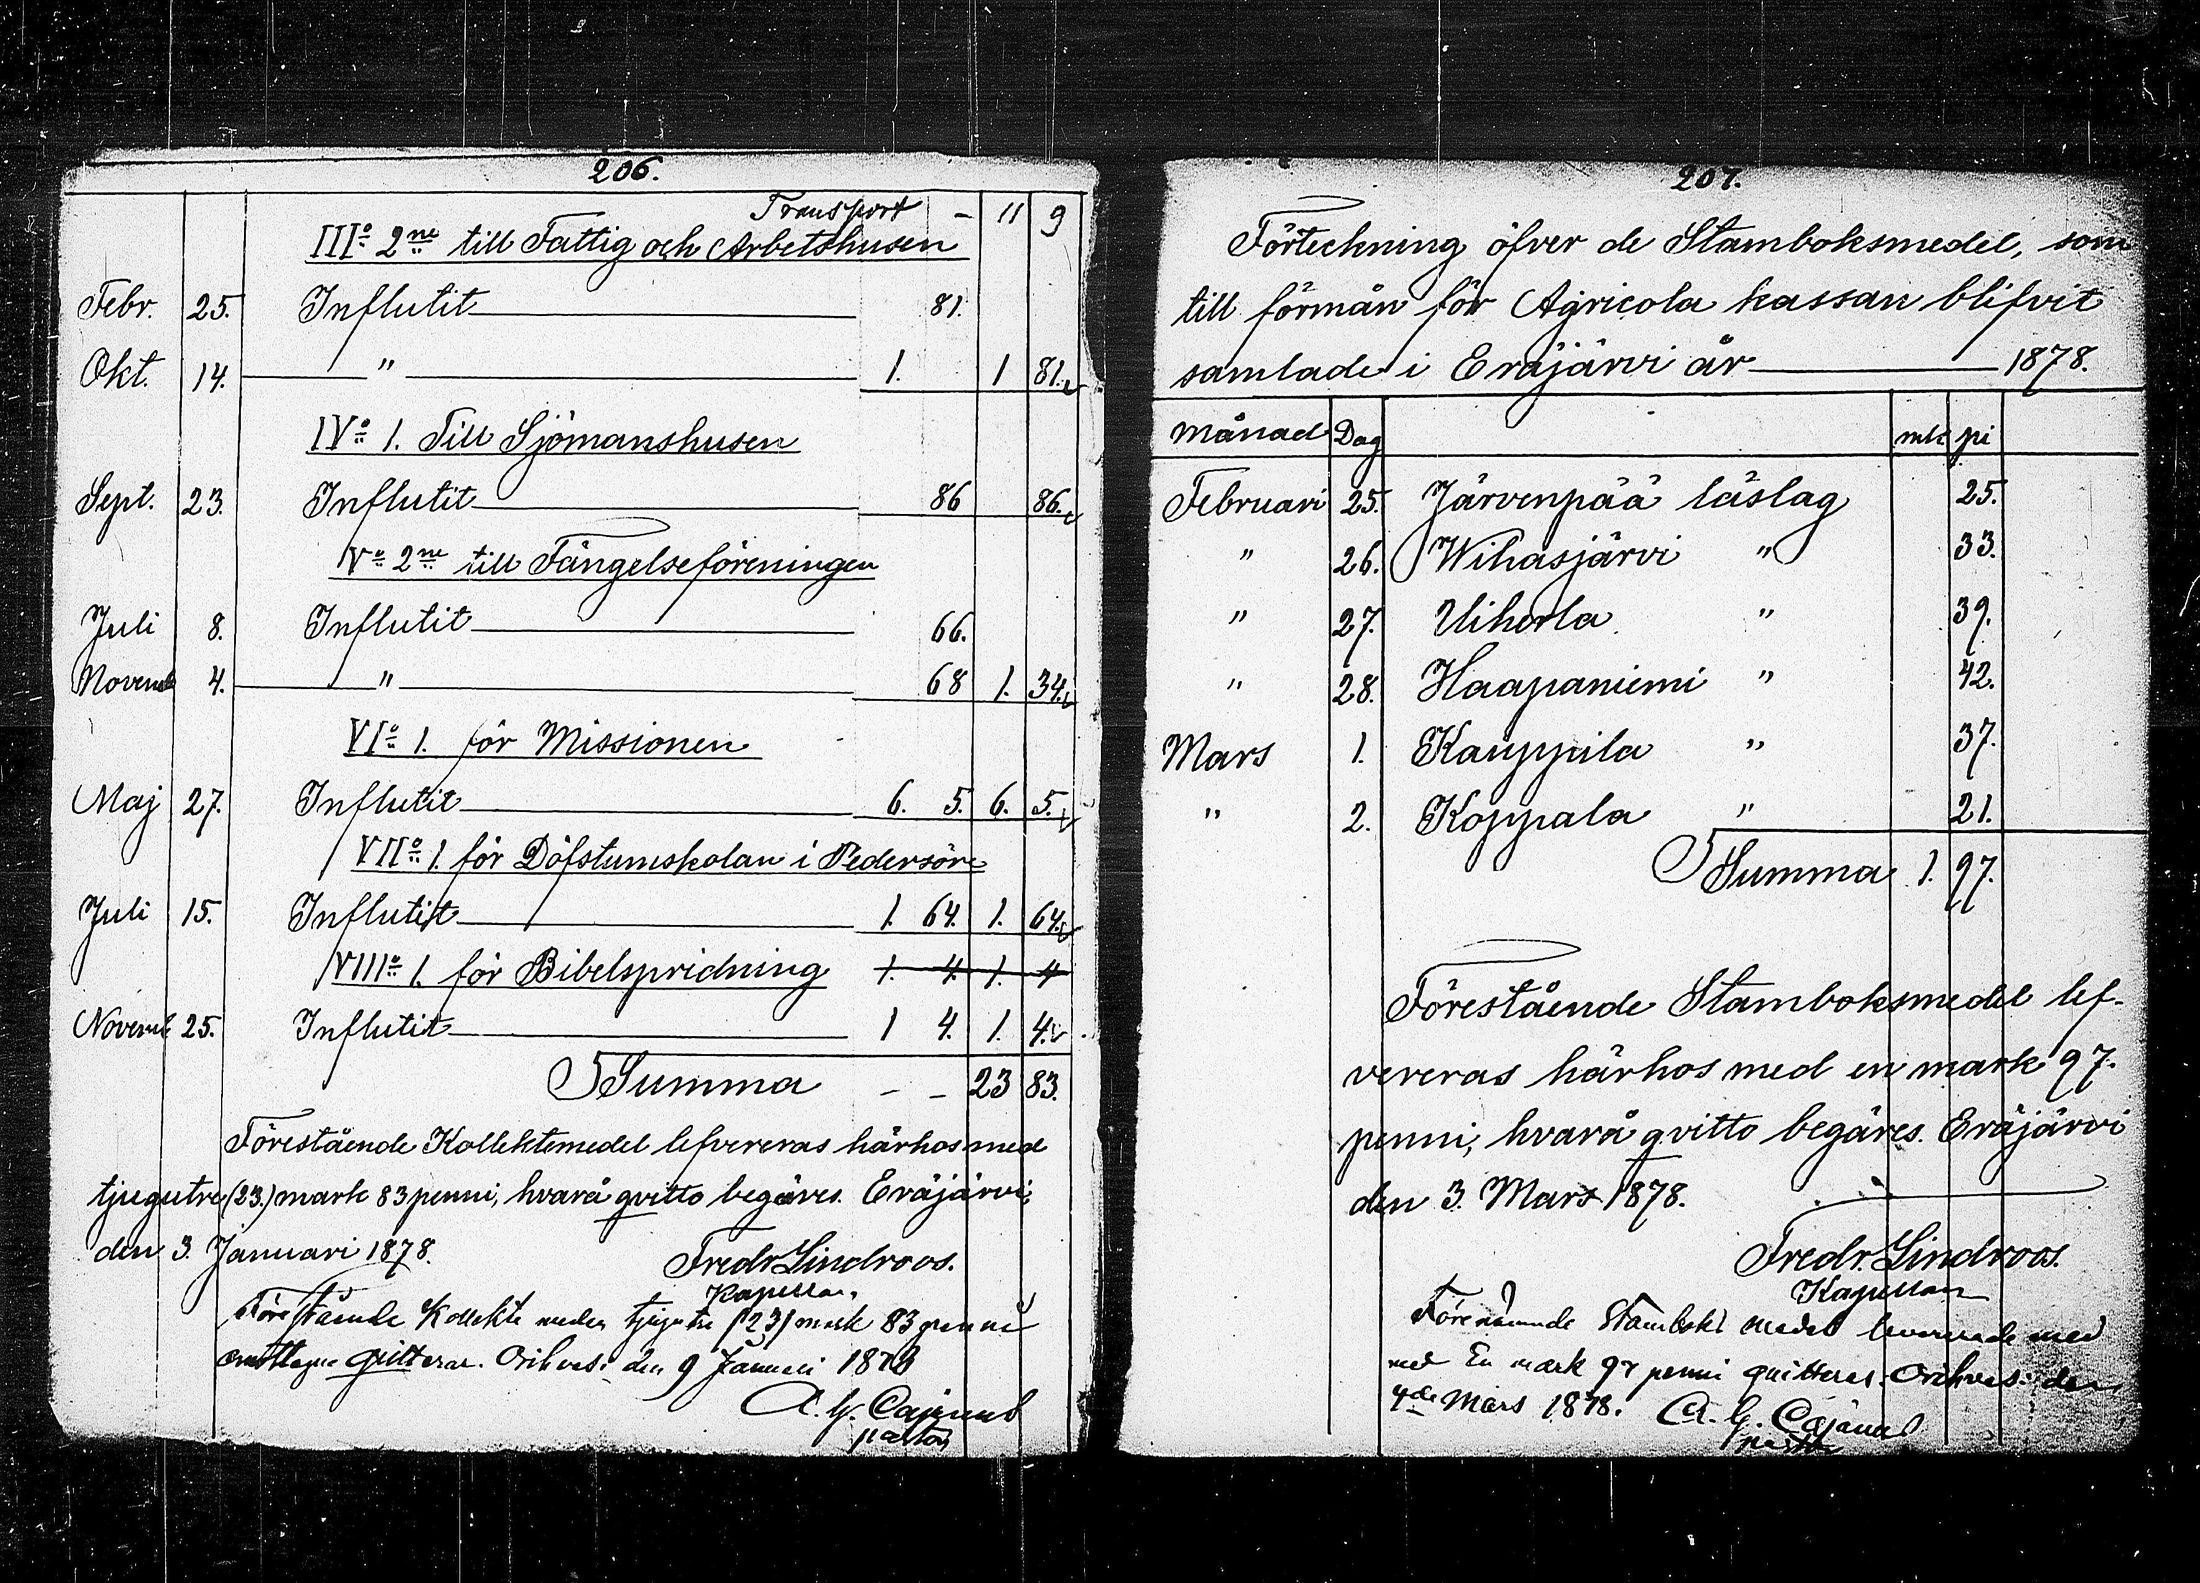 206.
Transport - 11 9
IIIº 2ne till Fattig och Arbetshusen
Febr. 25. Influtit 81.
Okt. 14. " 1. 1 81.
IVº 1. Till Sjömanshusen
Sept. 23. Influtit 86 86.
Vº 2ne till Fängelseföreningen
Juli 8. Influtit 66.
Novemb 4. " 68 1. 34.
VIº 1. för Missionen
Maj 27. Influtit 6. 5. 6. 5.
VIIº 1. för Döfstumskolan i Pedersöre
Juli 15. Influtit 1. 64. 1. 64.
VIIIº 1. för Bibelspridning 1. 4. 1. 4
Novemb 25. Influtit 1 4. 1. 4.
Summa - - 23 83.
Förestående Kollektemedel lefvereras härhos med
tjugutre (23.) mark 83 penni, hvarå qvitto begäres. Eräjärvi
den 3. Januari 1878.
Fredr. Lindroos.
Kapellan.
Förestående Kollekte medel tjugutre (23) mark 83 penni
emottagne quitteras. Orihvesi den 9 Januari 1878
A. G. Cajanus
pastor
207.
Förteckning öfver de Stamboksmedel, som
till förmån för Agricola kassan blifvit
samlade i Eräjärvi år 1878.
Månad Dag mk pi
Februari 25. Järvenpää läslag 25.
" 26. Wihasjärvi " 33.
" 27. Uiherla " 39.
" 28. Haapaniemi " 42.
Mars 1. Kauppila " 37.
" 2. Koppala " 21.
Summa 1. 97.
Förestående Stamboksmedel lef-
vereras härhos med en mark 97.
penni, hvarå qvitto begäres. Eräjärvi
den 3. Mars 1878.
Fredr. Lindroos.
Kapellan
Förenämnde Stamboks medel levererade med
med En mark 97 penni quitteras. Orihvesi den
4de Mars 1878. A. G. Cajanus
pastor